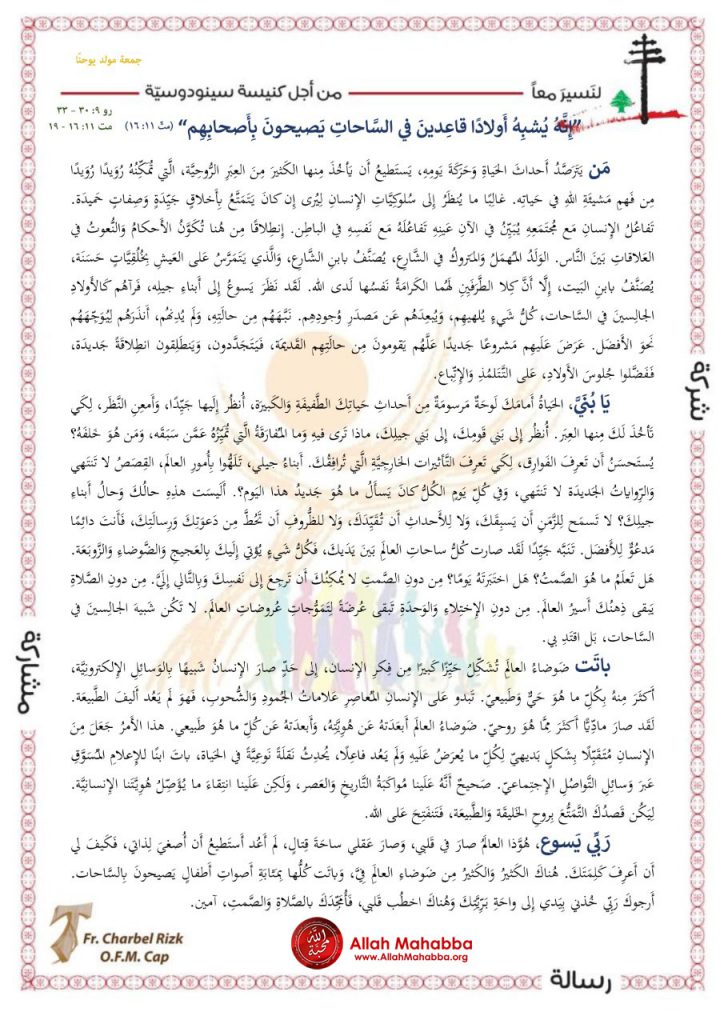 جمعة مولد يوحنّا
لنَسيرَ معاً
من أجل كنيسة سينودوسيّة
رو ٩: ٣٠ - ٣٣
مت ١١: ١٦ - ١٩
"إِنَّهُ يُشبِهُ أَولادًا قاعِدينَ في السَّاحاتِ يَصيحونَ بِأَصحابِهِم" (متّ ١١: ١٦)
مَن يَتَرَصَّدُ أَحداثَ الحَياةِ وَحَرَكَةَ يَومِهِ، يَستَطيعُ أَن يَأخُذَ مِنها الكَثيرَ مِنَ العِبَرِ الرُّوحِيَّةِ، الَّتي تُمَكِّنُهُ رُوَيدًا رُوَيدًا
مِن فَهمِ مَشيئَةِ اللهِ في حَياتِهِ. غالِبًا ما يُنظَرُ إِلى سُلوكِيَّاتِ الإِنسانِ لِيُرى إِن كانَ يَتَمَتَّعُ بِأَخلاقٍ جَيِّدَةٍ وَصِفاتٍ حَميدَة.
تَفاعُلُ الإِنسانِ مَع مُجتَمَعِهِ يُبَيِّنُ في الآنِ عَينِهِ تَفاعُلَهُ مَع نَفسِهِ في الباطِن. إِنطِلاقًا مِن هُنا تُكَوَّنُ الأَحكامُ وَالنُّعوتُ في
العَلاقاتِ بَينَ النَّاس. الوَلَدُ المُهمَلُ وَالمَتروكُ في الشَّارِعِ، يُصَنَّفُ بابنِ الشَّارِعِ، وَالَّذي يَتَمَرَّسُ عَلى العَيشِ بِخُلُقِيَّاتٍ حَسَنَة،
يُصَنَّفُ بابنِ البَيت، إِلَّا أَنَّ كِلا الطَّرَفَينِ لَهُما الكَرامَةُ نَفسُها لَدى الله. لَقَد نَظَرَ يَسوعُ إِلى أَبناءِ جيلِهِ، فَرَآهُم كَالأَولادِ
الجالِسينَ في السَّاحات، كُلُّ شَيءٍ يُلهيهِم، وَيُبعِدُهُم عَن مَصدَرِ وُجودِهِم. نَبَّهَهُم مِن حالَتِهِم، وَلَم يُدِنهُم، أَنذَرَهُم لِيُوَجِّهَهُم
نَحوَ الأَفضَل. عَرَضَ عَلَيهِم مَشروعًا جَديدًا عَلَّهُم يَقومونَ مِن حالَتِهِم القَديمَة، فَيَتَجَدَّدون، وَيَنطَلِقون انطِلاقَةً جَديدَة،
فَفَضَّلوا جُلوسَ الأَولادِ، عَلى التَّتَلمُذِ وَالإِتِّباع.
يَا بُنَيَّ، الحَياةُ أَمامَكَ لَوحَةٌ مَرسومَةٌ مِن أَحداثِ حَياتِكَ الطَّفيفَةِ وَالكَبيرَة، أُنظُر إِلَيها جَيِّدًا، وَأَمعِنِ النَّظَر، لِكَي
تَأخُذَ لَكَ مِنها العِبَر. أُنظُر إِلى بَني قَومِكَ، إِلى بَني جيلِكَ، ماذا تَرى فيهِ وَما المُفارَقَةُ الَّتي تُمَيِّزُهُ عَمَّن سَبَقَه، وَمَن هُوَ خَلفَهُ؟
يُستَحسَنُ أَن تَعرِفَ الفَوارِقَ، لِكَي تَعرِفَ التَّأثيرات الخارِجِيَّةِ الَّتي تُرافِقُكَ. أَبناءُ جيلي، تَلَهَّوا بِأُمورِ العالَم، القِصَصُ لا تَنتَهي
وَالرِّواياتُ الجَديدَة لا تَنتَهي، وَفي كُلِّ يَومٍ الكُلُّ كانَ يَسأَلُ ما هُوَ جَديدُ هذا اليَوم؟. أَلَيسَت هذِهِ حالُكَ وَحالُ أَبناءِ
جيلِكَ؟ لا تَسمَح لِلزَّمَنِ أَن يَسبِقَكَ، وَلا لِلأَحداثِ أَن تُقَيِّدَكَ، وَلا لِلظُّروفِ أَن تَحُطَّ مِن دَعوَتِكَ وَرِسالَتِكَ، فَأَنتَ دائِمًا
مَدعُوٌّ لِلأَفضَل. تَنَبَّه جَيِّدًا لَقَد صارت كُلُّ ساحاتِ العالَمِ بَينَ يَدَيكَ، فَكُلُّ شَيءٍ يُؤتى إِلَيكَ بِالعَجيجِ وَالضَّوضاءِ وَالزَّوبَعَة.
هَل تَعلَمُ ما هُوَ الصَّمتُ؟ هَل اختَبَرتَهُ يَومًا؟ مِن دونِ الصَّمتِ لا يُمكِنُكَ أَن تَرجِعَ إِلى نَفسِكَ وَبِالتَّالي إِلَيَّ. مِن دونِ الصَّلاةِ
يَبقى ذِهنُكَ أَسيرُ العالَم. مِن دونِ الإِختِلاءِ وَالوَحدَةِ تَبقى عُرضَةً لِتَمَوُّجاتِ عُروضاتِ العالَم. لا تَكُن شَبيهَ الجالِسينَ في
السَّاحات، بَل اقتَدِ بي.
باتَت ضَوضاءُ العالَمِ تُشَكِّلُ حَيِّزًا كَبيرًا مِن فِكرِ الإِنسان، إِلى حَدٍّ صارَ الإِنسانُ شَبيهًا بِالوَسائِلِ الإِلكترونِيَّة،
أَكثَرَ مِنهُ بِكُلِّ ما هُوَ حَيٌّ وَطَبيعيّ. تَبدو عَلى الإِنسانِ المُعاصِرِ عَلاماتُ الجُمودِ وَالشُّحوبِ، فَهوَ لَم يَعُد أَليفَ الطَّبيعَة.
لَقَد صارَ مادِّيًّا أَكثَرَ مِمَّا هُوَ روحيّ. ضَوضاءُ العالَم أَبعَدَتهُ عَن هُوِيَّتِهِ، وَأَبعَدَتهُ عَن كُلِّ ما هُوَ طَبيعي. هذا الأَمرُ جَعَلَ مِنَ
الإِنسانِ مُتَقَبِّلًا بِشَكلٍ بَديهيّ لِكُلِّ ما يُعرَضُ عَلَيهِ وَلَم يَعُد فاعِلًا، يُحدِثُ نَقلَةً نَوعِيَّةً في الحَياة، باتَ ابنًا لِلإِعلامِ المُسَوَّقِ
عَبرَ وَسائِلِ التَّواصُلِ الإِجتِماعيّ. صَحيحٌ أَنَّهُ عَلَينا مُواكَبَةُ التَّاريخِ وَالعَصر، وَلَكِن عَلَينا انتِقاءَ ما يُؤَصِّلُ هُوِيَّتَنا الإِنسانِيَّة.
لِيَكُن قَصدُكَ التَّمَتُّعَ بِروحِ الخَليقَةِ وَالطَّبيعَة، فَتَنفَتِحَ عَلى الله.
رَبِّي يَسوع، هُوَّذا العالَمُ صارَ في قَلبي، وَصارَ عَقلي ساحَةَ قِتالٍ، لَم أَعُد أَستَطيعُ أَن أُصغيَ لِذاتي، فَكَيفَ لي
أَن أَعرِفَ كَلِمَتَكَ. هُناكَ الكَثيرُ وَالكَثيرُ مِن ضَوضاءِ العالَمِ فِيَّ، وَباتَت كُلُّها بِمَثابَةِ أَصواتِ أَطفالٍ يَصيحونَ بِالسَّاحات.
أَرجوكَ رَبِّي خُذني بِيَدي إِلى واحَةِ بَرِّيَّتِكَ وَهُناكَ اخطُب قَلبي، فَأُمَجِّدَكَ بِالصَّلاةِ وَالصَّمتِ، آمين.
شركة
مشاركة
رسالة
Fr. Charbel Rizk
O.F.M. Cap
الله محبّة
Allah Mahabba
www.AllahMahabba.org